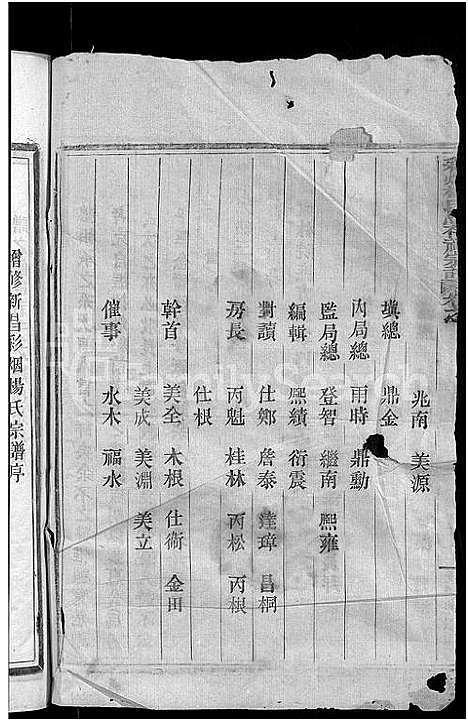 兆南 美源
塡總 鼎金
內局總 雨時 鼎勳
監局總 登智 繼南 熙雍
編輯 熙績 衍震
對讀 仕鄉 詹泰 達璋 昌桐
房長 丙魁 桂林 丙松 丙根
仕根
幹首 美全 木根 仕術 金田
美成 美淵 美立
催事 水木 福水
增修新昌彩烟楊氏宗譜序